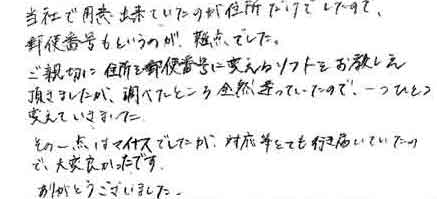 当社で用意出来ていたのが住所だけでしたので、
郵便番号もというのが、難点でした。
ご親切に住所を郵便番号に変えるソフトをお教え
頂きましたが、調べたところ全然違っていたので、一つひとつ
変えていきました。
その一点はマイナスでしたが、対応等とても行き届いていたの
で、大変良かったです。
ありがとうございました。